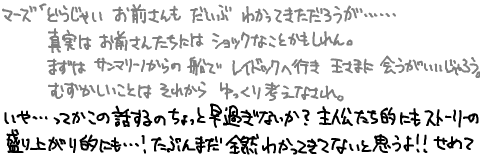 マーズ「どうじゃい お前さんも だいぶ わかってきただろうが……
真実は お前さんたちには ショックなことかもしれん。
まずは サンマリーノからの 船で レイドックへ行き 王さまに 会うがいいじゃろう。
むずかしいことは それから ゆっくり 考えなされ。
いせ…ってかこの話するのちょっと早過ぎないか？主人公たち的にもストーリーの
盛り上がり的にも…！たぶんまだ全然わかってきてないと思うよ！！せめて